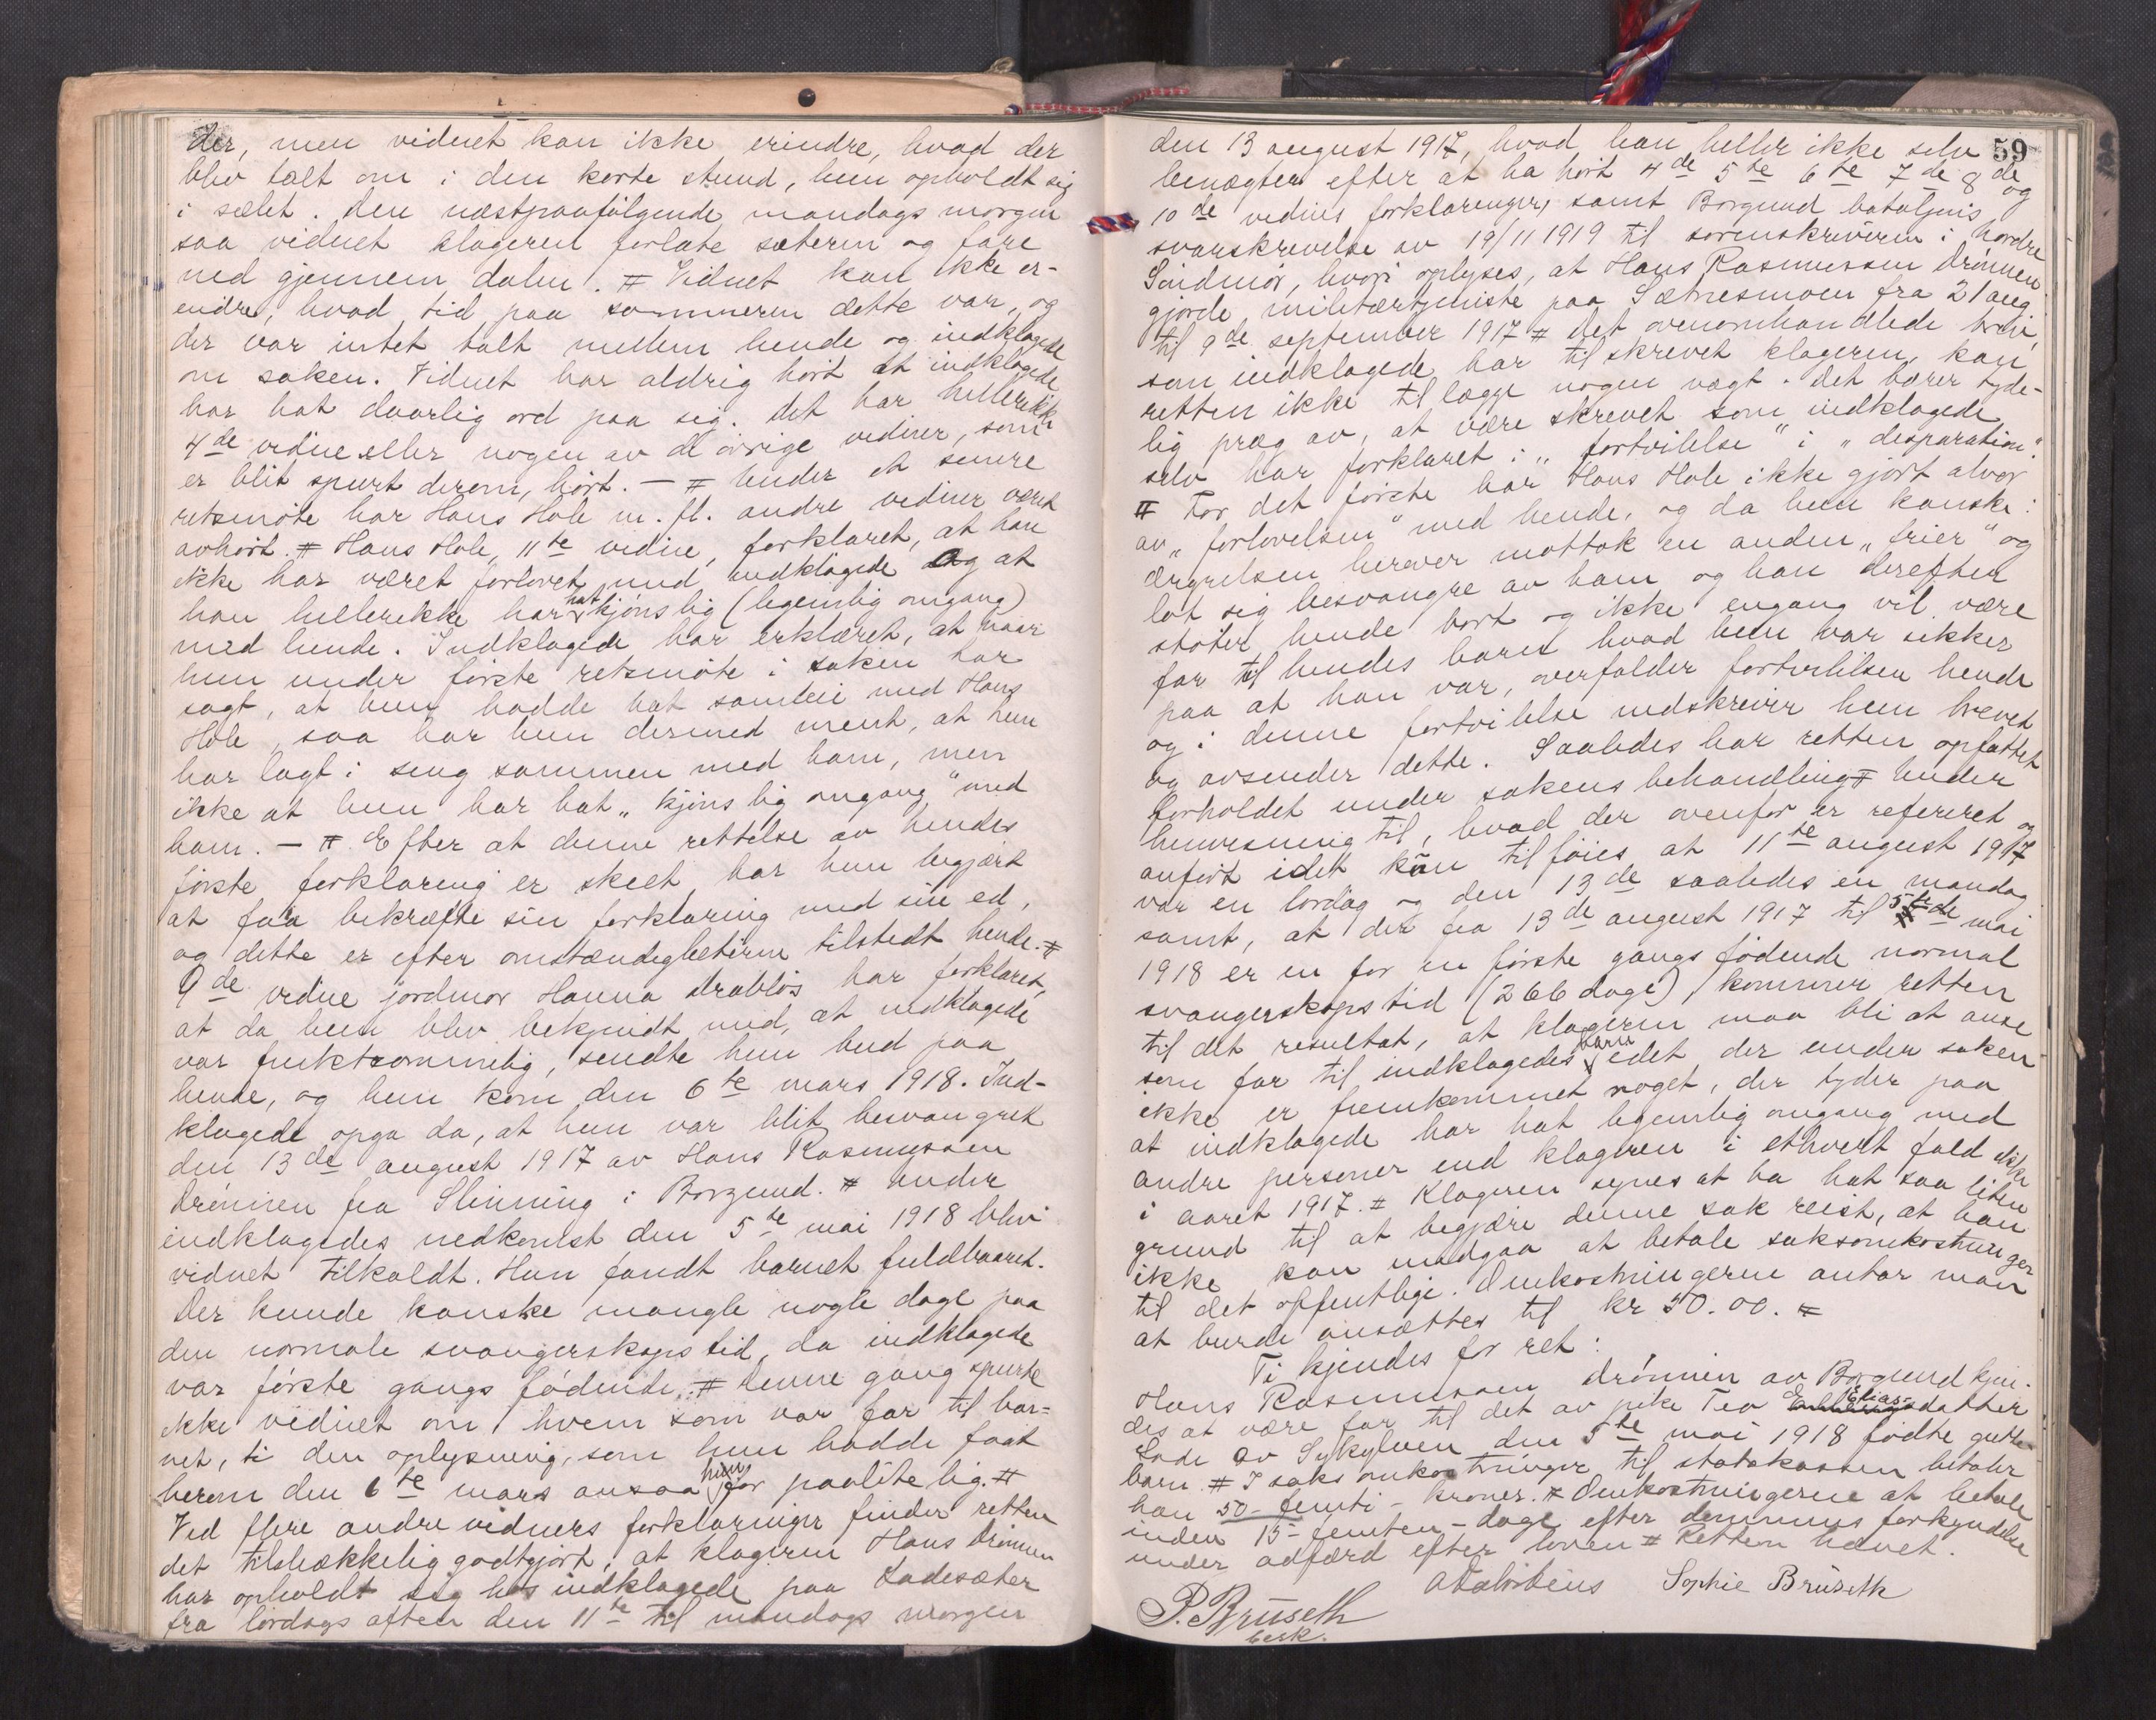 der, men vidnet kan ikke erindre, hvad der
blev talt om i den korte stund, hun opholdt sig
i sælet. Den næstpaafølgende mandags morgen
saa vidnet klageren forlate sæteren og fare
ned gjennem dalen. # Vidnet kan ikke er-
endre, hvad tid paa sommeren dette var, og
der var intet talt mellem hende og indklagede
om saken. Vidnet har aldrig hørt at indklagede
har hat daarlig ord paa sig. Det har hellerikke
4de vidne eller nogen av de øvrige vidner, som
er blit spurt derom, hørt. — # Under et senere
retsmøte har Hans Hole m. fl. andre vidner været
avhørt. # Hans Hole, 11te vidne, forklaret, at han
ikke har været forlovet med indklagede og at
han hellerikke har hat kjønslig (legemlig omgang)
med hende. Indklagede har erklæret, at naar
hun under første retsmøte i saken har
sagt, at hun hadde hat samleie med Hans
Hole, saa har hun dermed ment, at hun
har lagt i seng sammen med ham, men
ikke at hun har hat „kjønslig omgang" med
ham. — # Efter at denne rettelse av hendes
første forklaring er skeet, har hun begjært
at faa bekræfte sin forklaring med sin ed,
og dette er efter omstændigheterne tilstedt hende. #
9de vidne jordmor Hanna Drabløs har forklaret,
at da hun blev bekjendt med, at indklagede
var fruktsommelig, sendte hun bud paa
hende, og hun kom den 6te mars 1918. Ind-
klagede opga da, at hun var blit besvangret
den 13de august 1917 av Hans Rasmussen
Drønnen fra Slinning i Borgund. # Under
indklagedes nedkomst den 5te mai 1918 blev
vidnet tilkaldt. Hun fandt barnet fuldbaaret.
Der kunde kanske mangle nogle dage paa
den normale svangerskapstid, da indklagede
var første gangs fødende. # Denne gang spurte
ikke vidnet om hvem som var far til bar-
net, ti den oplysning, som hun hadde faat
herom den 6te mars ansaa hun for paalitelig. #
Ved flere andre vidners forklaringer finder retten
det tilstrækkelig godtgjort, at klageren Hans Drønnen
har opholdt sig hos indklagede paa Ladesæter
fra lørdags aften den 11te til mandags morgen
59
den 13 august 1917, hvad han heller ikke selv
benægter efter at ha hørt 4de 5te 6te 7de 8de og
10de vidnes forklaringer, samt Borgund bataljons
svarskrivelse av 19/11 1919 til sorenskriveren i nordre
Søndmør, hvori oplyses, at Hans Rasmussen Drønnen
gjorde militærtjeniste paa Sætnesmoen fra 21 aug.
til 9de september 1917 # Det ovenomhandlede brev,
som indklagede har tilskrevet klageren, kan
retten ikke tillægge nogen vægt. Det bærer tyde-
lig præg av, at være skrevet som indklagede
selv har forklaret i „fortvilelse" i „desparation".
# For det første har Hans Hole ikke gjort alvor
av „forlovelsen" med hende, og da hun kanske i
ærgrelsen herover mottok en anden „frier" og
lot sig besvangre av ham og han derefter
støter hende bort og ikke engang vil være
far til hendes barn hvad hun var sikker
paa at han var, overfalder fortvilelsen hende
og i denne fortvilelse nedskriver hun brevet
og avsender dette. Saaledes har retten opfattet
forholdet under sakens behandling # Under
henvisning til, hvad der ovenfor er referert og
anført idet kan tilføies at 11te august 1917
var en lørdag og den 13de saaledes en mandag
samt, at der fra 13de august 1917 til 5te mai
1918 er en for en første gangs fødende normal
svangerskapstid (266 dage), kommer retten
til det resultat, at klageren maa bli at anse
som far til indklagedes barn idet der under saken
ikke er fremkommet noget, der tyder paa
at indklagede har hat legemlig omgang med
andre personer end klageren i ethvert fald ikke
i aaret 1917. # Klageren synes at ha hat saa liten
grund til at begjære denne sak reist, at han
ikke kan undgaa at betale saksomkostninger
til det offentlige. Omkostningerne antar man
at burde ansættes til kr 50.00. #
Ti kjendes for ret:
Hans Rasmussen Drønnen av Borgund kjen-
des at være far til det av pike Tea Eliasdatter
Lade av Sykylven den 5te mai 1918 fødte gutte-
barn. # I saksomkostninger til statskassen betaler
han 50 - femti - kroner. # Omkostningerne at betale
inden 15 - femten - dage efter dommens forkyndelse
under adfærd efter loven # Retten hævet.
Sophie Brüseth
P. Brüseth
besk.